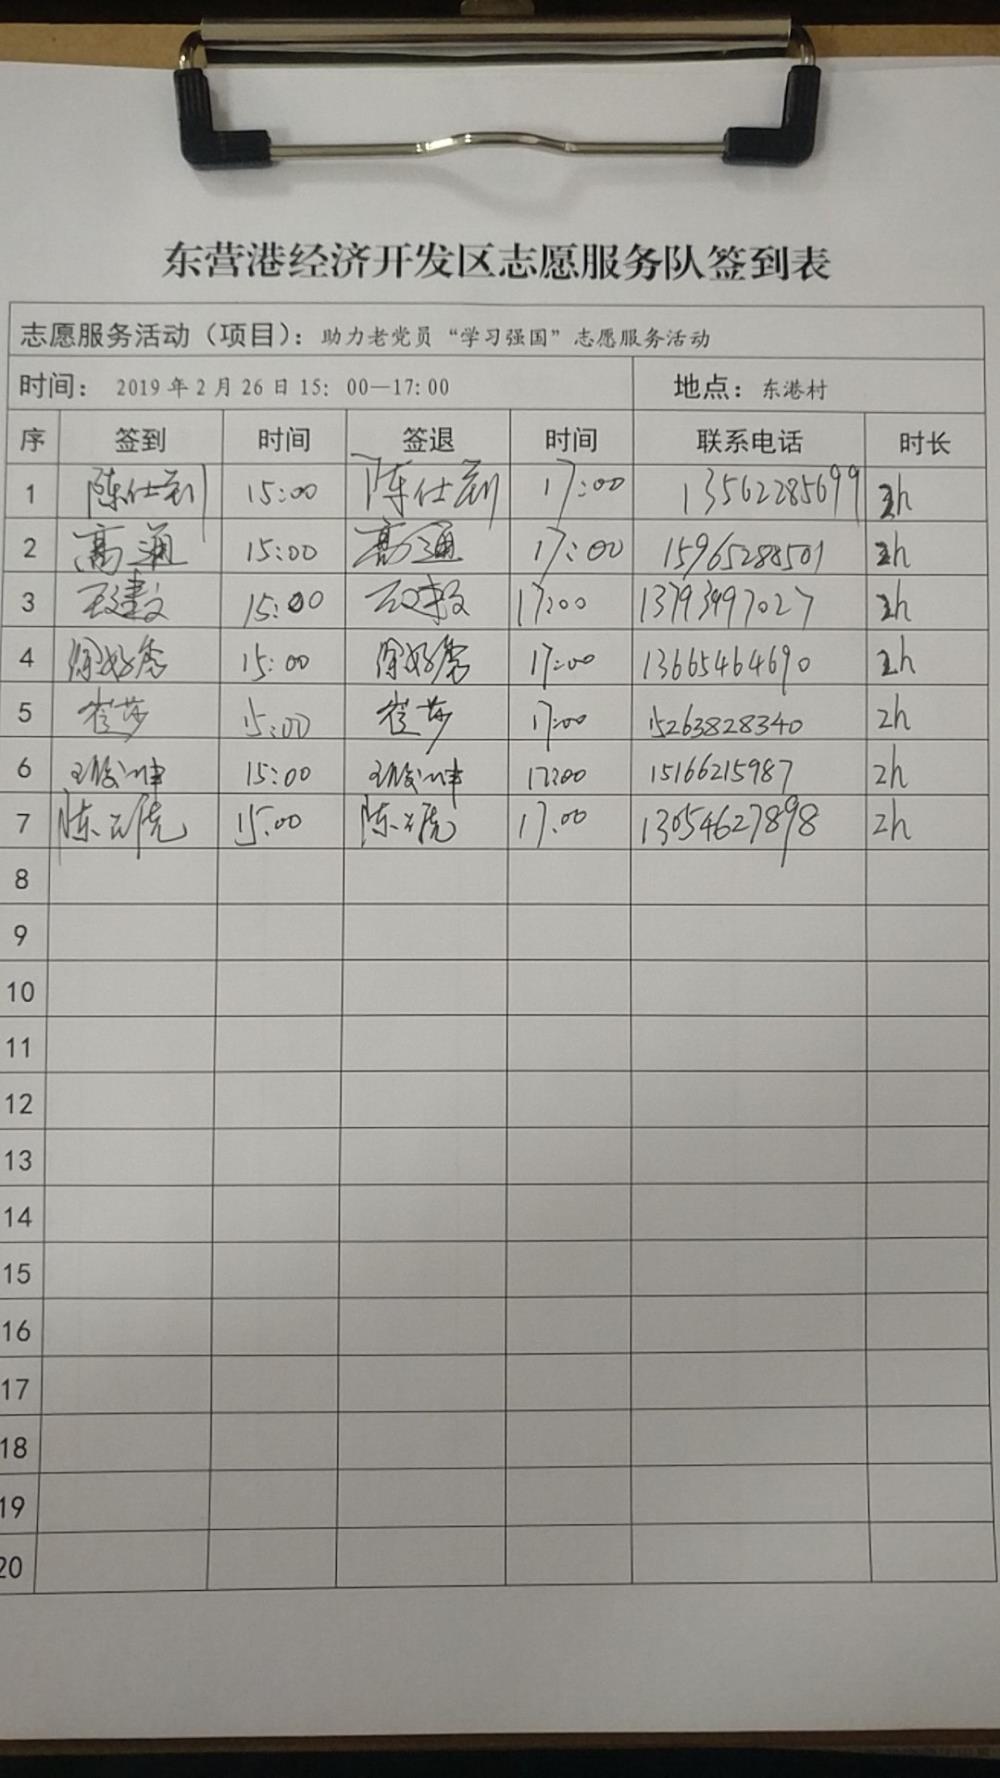 东营港经济开发区志愿服务队签到表
志愿服务活动（项目）：助力老党员“学习强国”志愿服务活动
时间： 2019年2月26日15：00—17:00 地点：东港村
序 签到 时间 签退 时间 联系电话 时长
1 陈仕 15:00 陈仕 17:00 13562285699 2h
2 高通 15:00 高通 17:00 15965288501 2h
3 15:00 17:00 13793497027 2h
4 徐好秀 15:00 徐好秀 17:00 13665464690 2h
5 崔莎 15:00 崔莎 17:00 15263828340 2h
6 15:00 17:00 15166215987 2h
7 陈 虎 15:00 陈 虎 17.00 13054627898 2h
8
9
10
11
12
13
14
15
16
17
18
19
20